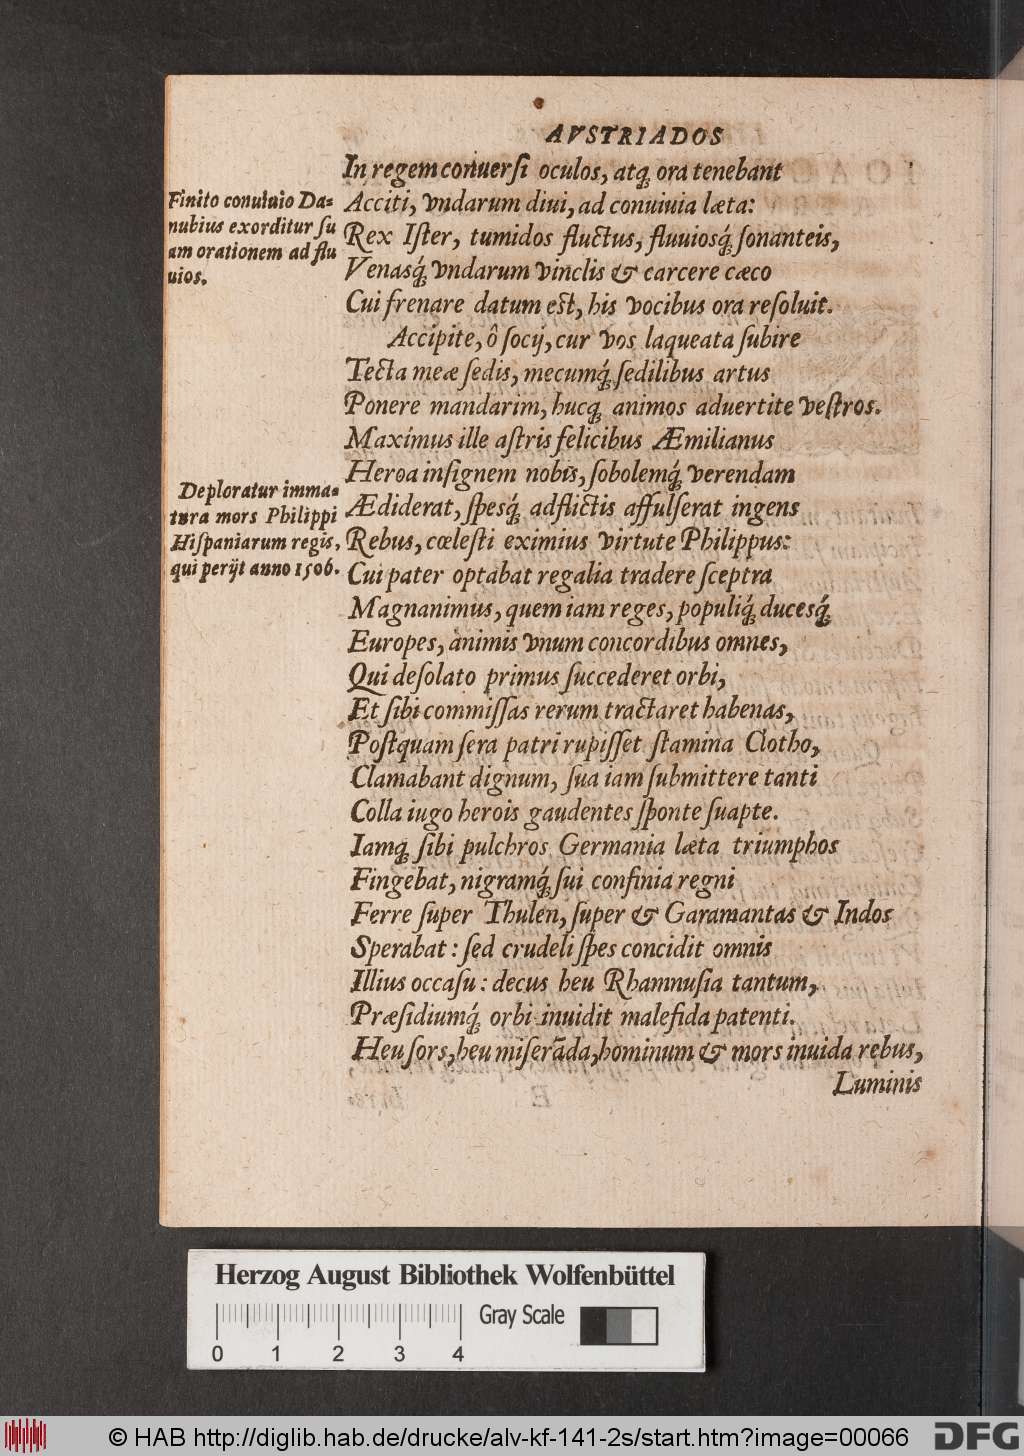 AVSTRIADOS
In regem conuersi oculos, atq́; ora tenebant
Acciti, vndarum diui, ad conuiuia læta:
Rex Ister, tumidos fluctus, fluuiosq́; sonanteis,
Venasq́; vndarum vinclis & carcere cæco
Cui frenare datum est, his vocibus ora resoluit.
Accipite, ô socij, cur vos laqueata subire
Tecta meæ sedis, mecumq́; sedilibus artus
Ponere mandarim, hucq́; animos aduertite vestros.
Maximus ille astris felicibus Æmilianus
Heroa insignem nobis, sobolemq́; verendam
Ædiderat, spesq́; adflictis affulserat ingens
Rebus, cœlesti eximius virtute Philippus:
Cui pater optabat regalia tradere sceptra
Magnanimus, quem iam reges, populiq́; ducesq́;
Europes, animis vnum concordibus omnes,
Qui desolato primus succederet orbi,
Et sibi commissas rerum tractaret habenas,
Postquam sera patri rupisset stamina Clotho,
Clamabant dignum, sua iam submittere tanti
Colla iugo herois gaudentes sponte suapte.
Iamq́; sibi pulchros Germania læta triumphos
Fingebat, nigramq́; sui confinia regni
Ferre super Thulen, super & Garamantas & Indos
Sperabat: sed crudeli spes concidit omnis
Illius occasu: decus heu Rhamnusia tantum,
Præsidiumq́; orbi inuidit malefida patenti.
Heu sors, heu miserāda, hominum & mors inuida rebus,
Luminis
Finito conuiuio Da-
nubius exorditur su
am orationem ad flu
uios.
Deploratur imma-
tura mors Philippi
Hispaniarum regis,
qui perijt anno 1506.
Herzog August Bibliothek Wolfenbüttel
Gray Scale
0 1 2 3 4
© HAB http://diglib.hab.de/drucke/alv-kf-141-2s/start.htm?image=00066
DFG